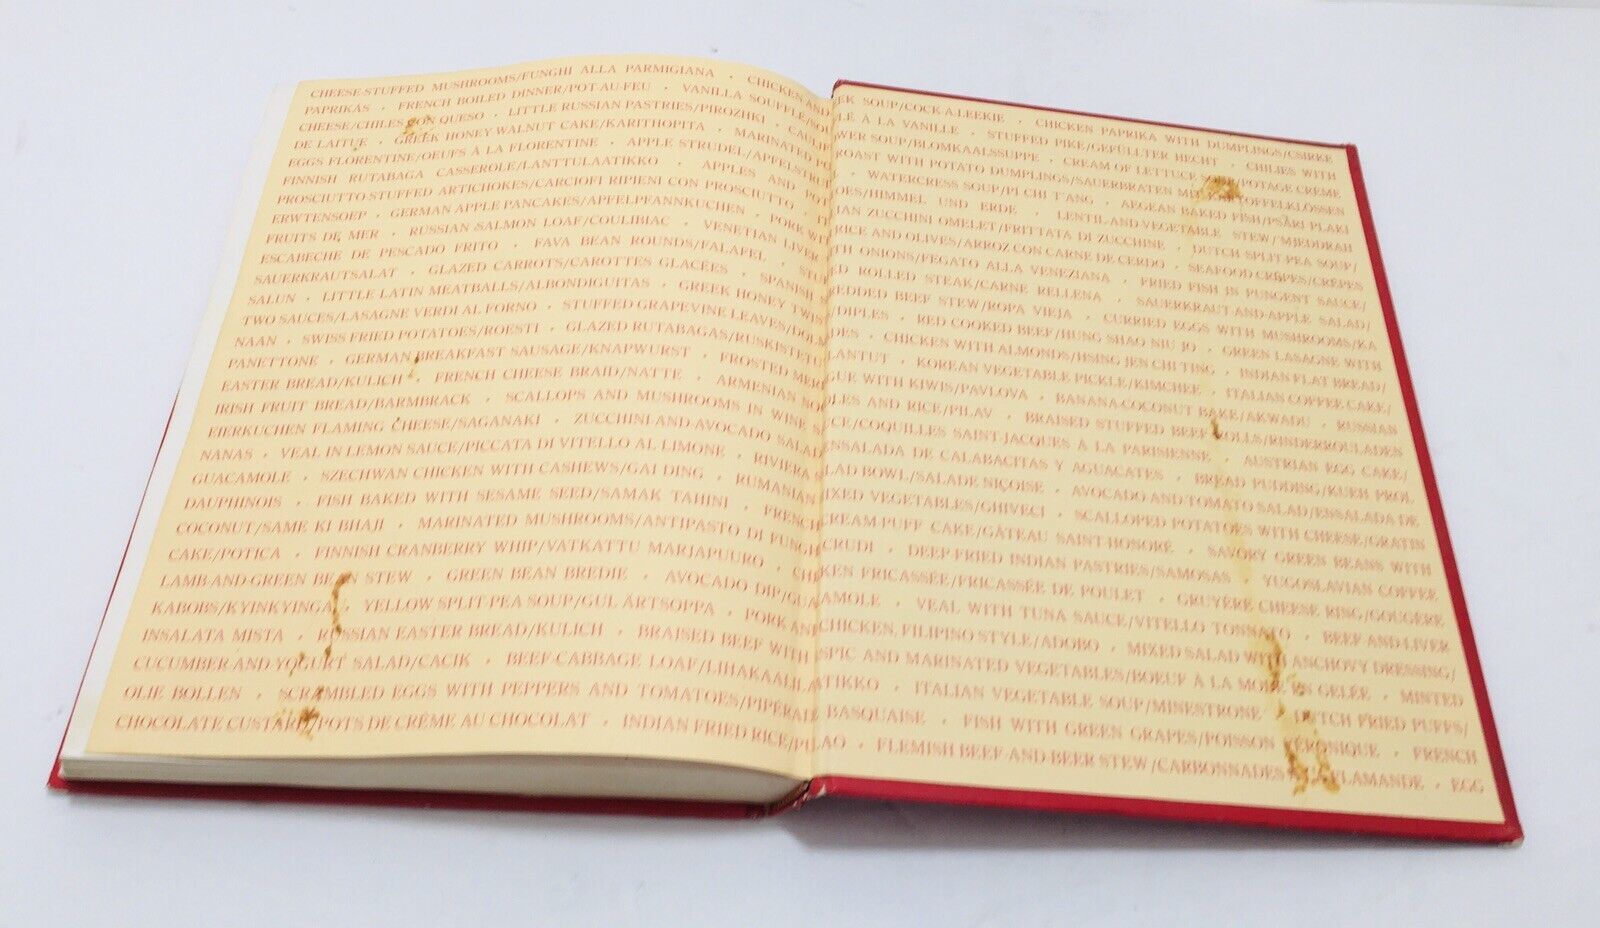 CHEESE-STUFFED MUSHROOMS/FUNGHI ALLA PARMIGIANA · CHICKEN AND LEEK SOUP/COCK-A-LEEKIE · CHICKEN PAPRIKA WITH DUMPLINGS/CSIRKE
PAPRIKÁS · FRENCH BOILED DINNER/POT-AU-FEU · VANILLA SOUFFLÉ/SOUFFLÉ À LA VANILLE · STUFFED PIKE/GEFÜLLTER HECHT · CHILIES WITH
CHEESE/CHILES CON QUESO · LITTLE RUSSIAN PASTRIES/PIROZHKI · CAULIFLOWER SOUP/BLOMKAALSSUPPE · CREAM OF LETTUCE SOUP/POTAGE CRÈME
DE LAITUE · GREEK HONEY-WALNUT CAKE/KARITHOPITA · MARINATED POT ROAST WITH POTATO DUMPLINGS/SAUERBRATEN MIT KARTOFFELKLÖSSEN
EGGS FLORENTINE/OEUFS À LA FLORENTINE · APPLE STRUDEL/APFELSTRUDEL · WATERCRESS SOUP/PI CHI T'ANG · AEGEAN BAKED FISH/PSÀRI PLAKI
FINNISH RUTABAGA CASSEROLE/LANTTULAATIKKO · APPLES AND POTATOES/HIMMEL UND ERDE · LENTIL-AND-VEGETABLE STEW/MJEDDRAH
PROSCIUTTO-STUFFED ARTICHOKES/CARCIOFI RIPIENI CON PROSCIUTTO · ITALIAN ZUCCHINI OMELET/FRITTATA DI ZUCCHINE · DUTCH SPLIT-PEA SOUP/
ERWTENSOEP · GERMAN APPLE PANCAKES/APFELPFANNKUCHEN · PORK WITH RICE AND OLIVES/ARROZ CON CARNE DE CERDO · SEAFOOD CRÊPES/CRÊPES
FRUITS DE MER · RUSSIAN SALMON LOAF/COULIBIAC · VENETIAN LIVER WITH ONIONS/FEGATO ALLA VENEZIANA · FRIED FISH IN PUNGENT SAUCE/
ESCABECHE DE PESCADO FRITO · FAVA BEAN ROUNDS/FALAFEL · STUFFED ROLLED STEAK/CARNE RELLENA · SAUERKRAUT-AND-APPLE SALAD/
SAUERKRAUTSALAT · GLAZED CARROTS/CAROTTES GLACÉES · SPANISH SHREDDED BEEF STEW/ROPA VIEJA · CURRIED EGGS WITH MUSHROOMS/KA
SALUN · LITTLE LATIN MEATBALLS/ALBONDIGUITAS · GREEK HONEY TWISTS/DIPLES · RED COOKED BEEF/HUNG SHAO NIU JO · GREEN LASAGNE WITH
TWO SAUCES/LASAGNE VERDI AL FORNO · STUFFED GRAPEVINE LEAVES/DOLMADES · CHICKEN WITH ALMONDS/HSING JEN CHI TING · INDIAN FLAT BREAD/
NAAN · SWISS FRIED POTATOES/ROESTI · GLAZED RUTABAGAS/RUSKISTETUT LANTUT · KOREAN VEGETABLE PICKLE/KIMCHEE · ITALIAN COFFEE CAKE/
PANETTONE · GERMAN BREAKFAST SAUSAGE/KNAPWURST · FROSTED MERINGUE WITH KIWIS/PAVLOVA · BANANA-COCONUT BAKE/AKWADU · RUSSIAN
EASTER BREAD/KULICH · FRENCH CHEESE BRAID/NATTE · ARMENIAN NOODLES AND RICE/PILAV · BRAISED STUFFED BEEF ROLLS/RINDERROULADEN
IRISH FRUIT BREAD/BARMBRACK · SCALLOPS AND MUSHROOMS IN WINE SAUCE/COQUILLES SAINT-JACQUES À LA PARISIENNE · AUSTRIAN EGG CAKE/
EIERKUCHEN FLAMING CHEESE/SAGANAKI · ZUCCHINI-AND-AVOCADO SALAD/ENSALADA DE CALABACITAS Y AGUACATES · BREAD PUDDING/KUEH PROL
NANAS · VEAL IN LEMON SAUCE/PICCATA DI VITELLO AL LIMONE · RIVIERA SALAD BOWL/SALADE NIÇOISE · AVOCADO AND TOMATO SALAD/ENSALADA DE
GUACAMOLE · SZECHWAN CHICKEN WITH CASHEWS/GAI DING · RUMANIAN MIXED VEGETABLES/GHIVECI · SCALLOPED POTATOES WITH CHEESE/GRATIN
DAUPHINOIS · FISH BAKED WITH SESAME SEED/SAMAK TAHINI · FRENCH CREAM-PUFF CAKE/GÂTEAU SAINT-HONORÉ · SAVORY GREEN BEANS WITH
COCONUT/SAME KI BHAJI · MARINATED MUSHROOMS/ANTIPASTO DI FUNGHI CRUDI · DEEP-FRIED INDIAN PASTRIES/SAMOSAS · YUGOSLAVIAN COFFEE
CAKE/POTICA · FINNISH CRANBERRY WHIP/VATKATTU MARJAPUURO · CHICKEN FRICASSÉE/FRICASSÉE DE POULET · GRUYÈRE CHEESE RING/GOUGÈRE
LAMB-AND-GREEN BEAN STEW · GREEN BEAN BREDIE · AVOCADO DIP/GUACAMOLE · VEAL WITH TUNA SAUCE/VITELLO TONNATO · BEEF-AND-LIVER
KABOBS/KYINKYINGA · YELLOW SPLIT PEA SOUP/GUL ÄRTSOPPA · PORK AND CHICKEN, FILIPINO STYLE/ADOBO · MIXED SALAD WITH ANCHOVY DRESSING/
INSALATA MISTA · RUSSIAN EASTER BREAD/KULICH · BRAISED BEEF WITH ASPIC AND MARINATED VEGETABLES/BOEUF À LA MODE EN GELÉE · MINTED
CUCUMBER-AND-YOGURT SALAD/CACIK · BEEF-CABBAGE LOAF/LIHAKAALILAATIKKO · ITALIAN VEGETABLE SOUP/MINESTRONE · DUTCH FRIED PUFFS/
OLIE BOLLEN · SCRAMBLED EGGS WITH PEPPERS AND TOMATOES/PIPÉRADE BASQUAISE · FISH WITH GREEN GRAPES/POISSON VÉRONIQUE · FRENCH
CHOCOLATE CUSTARD/POTS DE CRÈME AU CHOCOLAT · INDIAN FRIED RICE/PILAO · FLEMISH BEEF-AND-BEER STEW/CARBONNADES À LA FLAMANDE · EGG